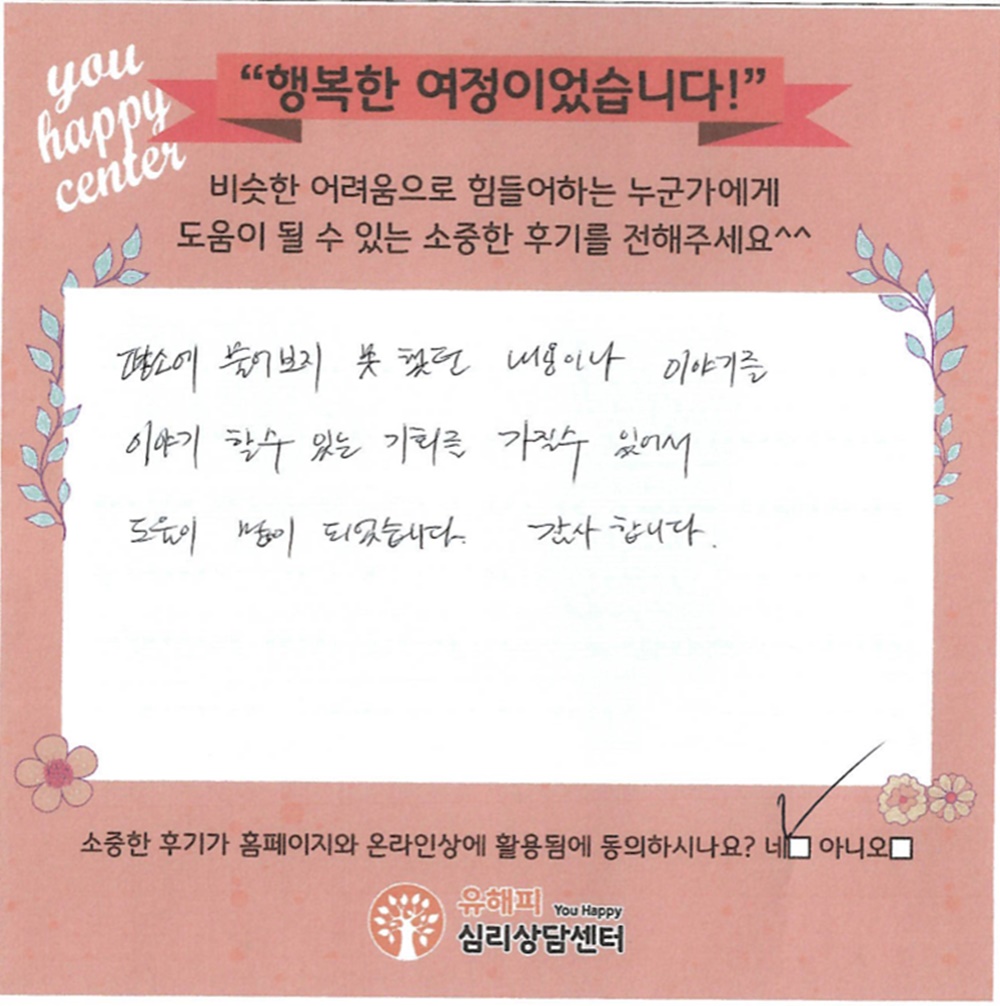 you
happy
center
“행복한 여정이었습니다!”
비슷한 어려움으로 힘들어하는 누군가에게
도움이 될 수 있는 소중한 후기를 전해주세요^^
평소에 물어보지 못 했던 내용이나 이야기를
이야기 할수 있는 기회를 가질수 있어서
도움이 많이 되었습니다. 감사 합니다.
소중한 후기가 홈페이지와 온라인상에 활용됨에 동의하시나요? 네 아니오
유해피 You Happy
심리상담센터